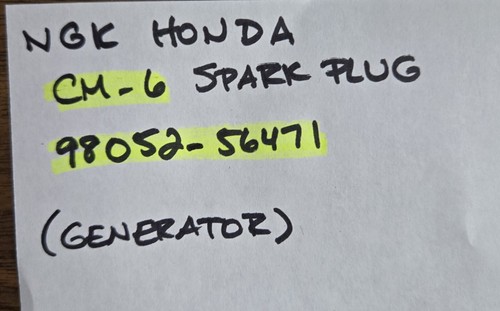 NGK HONDA
CM-6 SPARK PLUG
98052-56471
(GENERATOR)